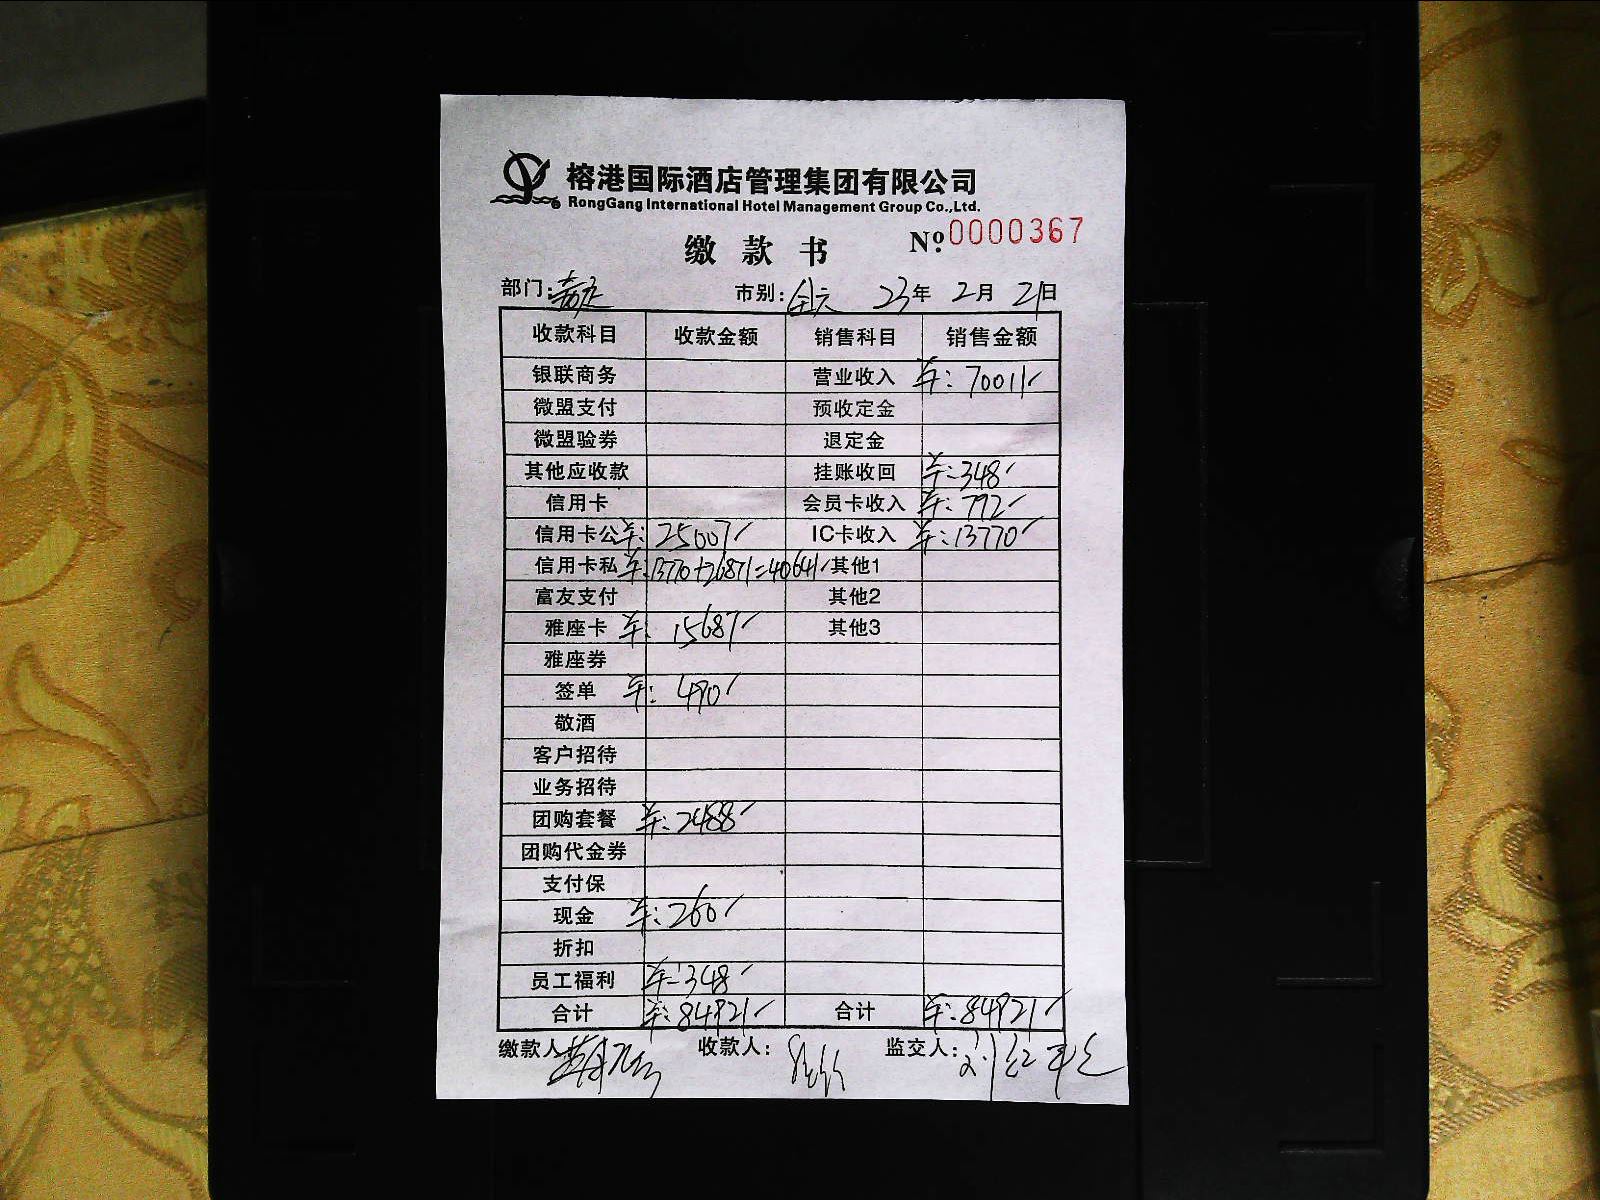 榕港国际酒店管理集团有限公司
RongGang International Hotel Management Group Co.,Ltd.
缴 款 书 Nº:0000367
部门: 市别: 全天 23年 2月 21日
收款科目 收款金额 销售科目 销售金额
银联商务 营业收入 ¥:70011
微盟支付 预收定金
微盟验券 退定金
其他应收款 挂账收回 ¥:348
信用卡 会员卡收入 ¥:792
信用卡公 ¥:25007 IC卡收入 ¥:13770
信用卡私 ¥:13770+26871=40641 其他1
富友支付 其他2
雅座卡 ¥:15687 其他3
雅座券
签单 ¥:490
敬酒
客户招待
业务招待
团购套餐 ¥:2488
团购代金券
支付保
现金 ¥:260
折扣
员工福利 ¥:348
合计 ¥:84921 合计 ¥:84921
缴款人 收款人: 监交人: